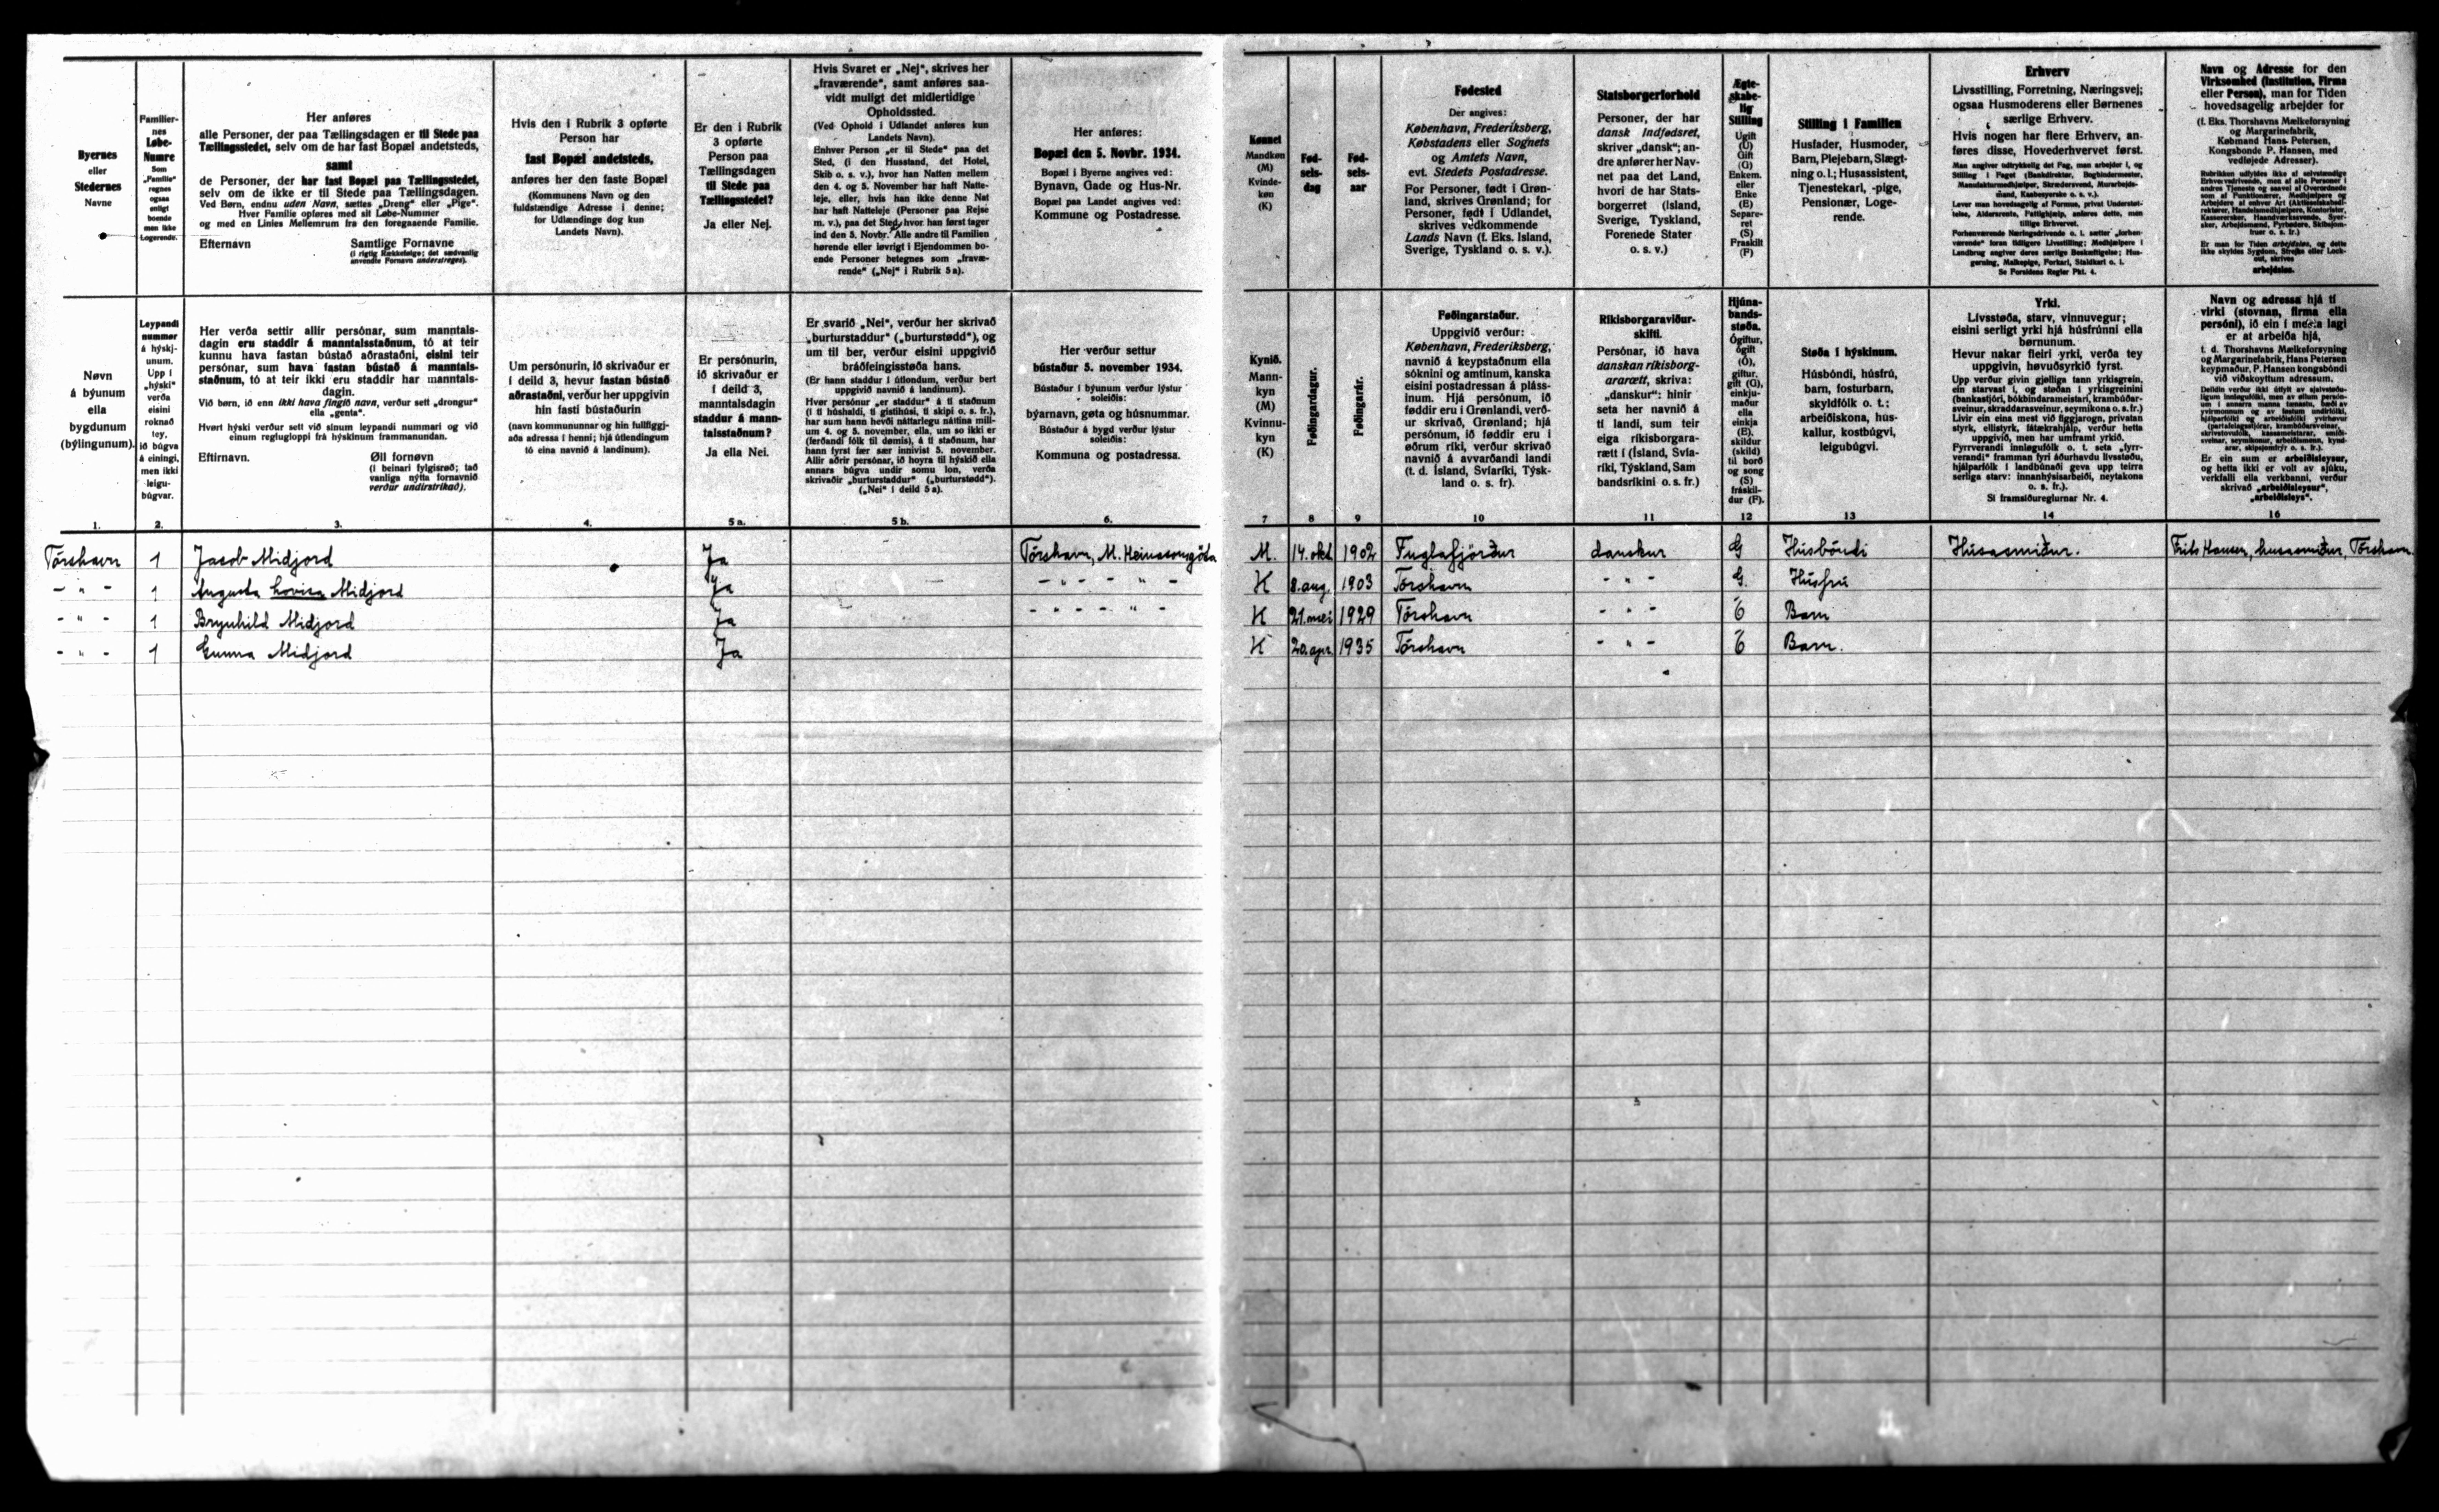 Byernes
eller
Stedernes
Navne
Familier-
nes
Løbe-
Numre
Som
„Familie"
regnes
ogsaa
enligt
boende
men ikke
Logerende.
Her anføres
alle Personer, der paa Tællingsdagen er til Stede paa
Tællingsstedet, selv om de har fast Bopæl andetsteds,
samt
de Personer, der har fast Bopæl paa Tællingsstedet,
selv om de ikke er til Stede paa Tællingsdagen.
Ved Børn, endnu uden Navn, sættes „Dreng" eller „Pige".
Hver Familie opføres med sit Løbe-Nummer
og med en Linies Mellemrum fra den foregaaende Familie.
Efternavn Samtlige Fornavne
(i rigtig Rækkefølge; det sædvanlig
anvendte Fornavn understreges).
Hvis den i Rubrik 3 opførte
Person har
fast Bopæl andetsteds,
anføres her den faste Bopæl
(Kommunens Navn og den
fuldstændige Adresse i denne;
for Udlændinge dog kun
Landets Navn).
Er den i Rubrik
3 opførte
Person paa
Tællingsdagen
til Stede paa
Tællingsstedet?
Ja eller Nej.
Hvis Svaret er „Nej", skrives her
„fraværende", samt anføres saa-
vidt muligt det midlertidige
Opholdssted.
(Ved Ophold i Udlandet anføres kun
Landets Navn).
Enhver Person „er til Stede" paa det
Sted, (i den Husstand, det Hotel,
Skib o. s. v.), hvor han Natten mellem
den 4. og 5. November har haft Natte-
leje, eller, hvis han ikke denne Nat
har haft Natteleje (Personer paa Rejse
m. v.), paa det Sted, hvor han først tager
ind den 5. Novbr. Alle andre til Familien
hørende eller iøvrigt i Ejendommen bo-
ende Personer betegnes som „fravæ-
rende" („Nej" i Rubrik 5 a).
Her anføres:
Bopæl den 5. Novbr. 1934.
Bopæl i Byerne angives ved:
Bynavn, Gade og Hus-Nr.
Bopæl paa Landet angives ved:
Kommune og Postadresse.
Kønnet
Mandkøn
(M)
Kvinde-
køn
(K)
Fød-
sels-
dag
Fød-
sels-
aar
Fødested
Der angives:
København, Frederiksberg,
Købstadens eller Sognets
og Amtets Navn,
evt. Stedets Postadresse.
For Personer, født i Grøn-
land, skrives Grønland; for
Personer, født i Udlandet,
skrives vedkommende
Lands Navn (f. Eks. Island,
Sverige, Tyskland o. s. v.).
Statsborgerforhold
Personer, der har
dansk Indfødsret,
skriver „dansk"; an-
dre anfører her Nav-
net paa det Land,
hvori de har Stats-
borgerret (Island,
Sverige, Tyskland,
Forenede Stater
o. s. v.)
Ægte-
skabe-
lig
Stilling
Ugift
(U)
Gift
(G)
Enkem.
eller
Enke
(E)
Separe-
ret
(S)
Fraskilt
(F)
Stilling i Familien
Husfader, Husmoder,
Barn, Plejebarn, Slægt-
ning o. l.; Husassistent,
Tjenestekarl, -pige,
Pensionær, Loge-
rende.
Erhverv
Livsstilling, Forretning, Næringsvej;
ogsaa Husmoderens eller Børnenes
særlige Erhverv.
Hvis nogen har flere Erhverv, an-
føres disse, Hovederhvervet først.
Se Forsidens Regler Pkt. 4.
Navn og Adresse for den
Virksomhed (Institution, Firma
eller Person), man for Tiden
hovedsagelig arbejder for
(f. Eks. Thorshavns Mælkeforsyning
og Margarinefabrik,
Købmand Hans Petersen,
Kongsbonde P. Hansen, med
vedføjede Adresser).
arbejdsløs.
Nøvn
á býunum
ella
bygdunum
(býlingunum).
Leypandi
nummer
á hýskj-
unum.
Upp í
„hýski"
verða
eisini
roknað
tey,
ið búgva
á einingi,
men ikki
leigu-
búgvar.
Her verða settir allir persónar, sum manntals-
dagin eru staddir á manntalsstaðnum, tó at teir
kunnu hava fastan bústað aðrastaðni, eisini teir
persónar, sum hava fastan bústað á manntals-
staðnum, tó at teir ikki eru staddir har manntals-
dagin.
Við børn, ið enn ikki hava fingið navn, verður sett „drongur"
ella „genta".
Hvørt hýski verður sett við sínum leypandi nummari og við
einum reglugloppi frá hýskinum frammanundan.
Eftirnavn. Øll fornøvn
(í beinari fylgisrøð; tað
vanliga nýtta fornavnið
verður undirstrikað).
Um persónurin, ið skrivaður er
í deild 3, hevur fastan bústað
aðrastaðni, verður her uppgivin
hin fasti bústaðurin
(navn kommununnar og hin fullfíggj-
aða adressa í henni; hjá útlendingum
tó eina navnið á landinum).
Er persónurin,
ið skrivaður er
í deild 3,
manntalsdagin
staddur á mann-
talsstaðnum?
Ja ella Nei.
Er svarið „Nei", verður her skrivað
„burturstaddur" („burturstødd"), og
um til ber, verður eisini uppgivið
bráðfeingisstøða hans.
(Er hann staddur í útlondum, verður bert
uppgivið navnið á landinum).
Hvør persónur „er staddur" á tí staðnum
(í tí húshaldi, tí gistihúsi, tí skipi o. s. fr.),
har sum hann hevði náttarlegu náttina mill-
um 4. og 5. november, ella, um so ikki er
(ferðandi fólk til dømis), á tí staðnum, har
hann fyrst fær sær innivist 5. november.
Allir aðrir persónar, ið hoyra til hýskið ella
annars búgva undir somu lon, verða
skrivaðir „burturstaddur" („burturstødd").
(„Nei" í deild 5 a).
Her verður settur
bústaður 5. november 1934.
Bústaður í býunum verður lýstur
soleiðis:
býarnavn, gøta og húsnummar.
Bústaður á bygd verður lýstur
soleiðis:
Kommuna og postadressa.
Kynið.
Mann-
kyn
(M)
Kvinnu-
kyn
(K)
Føðingardagur.
Føðingarár.
Føðingarstaður.
Uppgivið verður:
København, Frederiksberg,
navnið á keypstaðnum ella
sóknini og amtinum, kanska
eisini postadressan á pláss-
inum. Hjá persónum, ið
føddir eru í Grønlandi, verð-
ur skrivað, Grønland; hjá
persónum, ið føddir eru í
øðrum ríki, verður skrivað
navnið á avvarðandi landi
(t. d. Ísland, Svíaríki, Týsk-
land o. s. fr).
Ríkisborgaraviður-
skifti.
Persónar, ið hava
danskan ríkisborg-
ararætt, skriva:
„danskur": hinir
seta her navnið á
tí landi, sum teir
eiga ríkisborgara-
rætt í (Ísland, Svía-
ríki, Týskland, Sam
bandsríkini o. s. fr.)
Hjúna-
bands-
støða.
Ógiftur,
ógift
(Ó),
giftur,
gift (G),
einkju-
maður
ella
einkja
(E),
skildur
(skild)
til borð
og song
(S)
fráskil-
dur (F).
Støða í hýskinum.
Húsbóndi, húsfrú,
barn, fosturbarn,
skyldfólk o. t.;
arbeiðiskona, hús-
kallur, kostbúgvi,
leigubúgvi.
Yrki.
Livsstøða, starv, vinnuvegur;
eisini serligt yrki hjá húsfrúnni ella
børnunum.
Hevur nakar fleiri yrki, verða tey
uppgivin, høvuðsyrkið fyrst.
Sí framsíðureglurnar Nr. 4.
Navn og adressa hjá tí
virki (stovnan, firma ella
persóni), ið ein í mesta lagi
er at arbeiða hjá,
t. d. Thorshavns Mælkeforsyning
og Margarinefabrik, Hans Petersen
keypmaður, P. Hansen kongsbóndi
við viðskoyttum adressum.
Er ein sum er arbeiðisleysur,
og hetta ikki er volt av sjúku,
verkfalli ella verkbanni, verður
skrivað „arbeiðisleysur",
„arbeiðisleys".
1. 2. 3. 4. 5 a. 5 b. 6. 7 8 9 10 11 12 13 14 16
Tórshavn 1 Jacob Midjord Ja Tórshavn, M. Heinesongøta M. 14. okt 1902 Fuglafjørður danskur G Húsbóndi Húsasmiður. Frits Hansen, húsasmiður, Tórshavn.
- " - 1 Augusta Lovisa Midjord Ja - " - - " - K 8. aug. 1903 Tórshavn - " - G. Húsfrú
- " - 1 Brynhild Midjord Ja - " - - " - K 21. mei 1929 Tórshavn - " - Ó Barn
- " - 1 Gunna Midjord Ja K 20. apr. 1935 Tórshavn - " - Ó Barn.